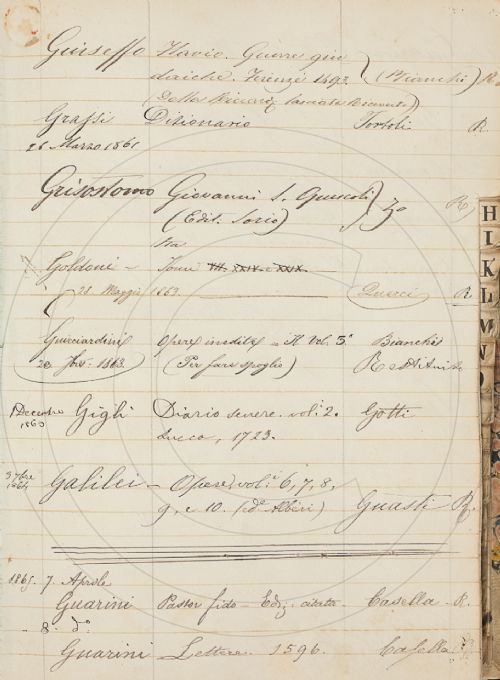 Giuseffo Flavio. Guerre giu
daiche. Firenze 1493 (Bianchi) R.
(Della Riccard.
Grassi Dizionario Tortoli R.
26 Marzo 1861
Grisostomo Giovanni S. Opuscoli
(Ediz. Sorio) R
Goldoni – Tomi VII. XXIX. e XXIX.
28. Maggio 1863 Querci R.
Guicciardini Opere inedite – Il Vol. 5.º Bianchi
20 1863. (Per fare spoglio) Restituito
1 Decembre 1863 Gigli Diario senese. vol.i 2. Gotti
Lucca, 1723.
9 7bre 1864 Galilei – Opere, vol.i 6, 7, 8,
9, e 10. (ed.e Albèri) Guasti R.
1865. 7. Aprile
Guarini Pastor fido – Ediz. citata – Casella – R.
– 8. d.o
Guarini Lettere. 1596. Casella R.
H
I
K
L
M
N
O